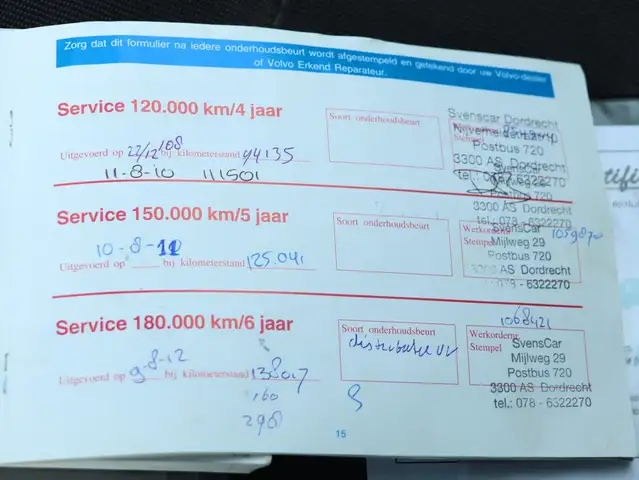 Zorg dat dit formulier na iedere onderhoudsbeurt wordt afgestempeld en getekend door uw Volvo-dealer
of Volvo Erkend Reparateur.
Service 120.000 km/4 jaar
Soort onderhoudsbeurt
Svenscar Dordrecht
Stempel
Postbus 720
3300 AS Dordrecht
Uitgevoerd op 22/12/08 bij kilometerstand 94.135
11-8-10 111501
Postbus 720
3300 AS Dordrecht
tel.: 078-6322270
Service 150.000 km/5 jaar
Soort onderhoudsbeurt
SvensCar
Stempel
Mijlweg 29
Postbus 720
3300 AS Dordrecht
078 - 6322270
10-8-11
Uitgevoerd op bij kilometerstand 125.041
Service 180.000 km/6 jaar
Soort onderhoudsbeurt
1068421
Werkordernr.
Stempel
SvensCar
Mijlweg 29
Postbus 720
3300 AS Dordrecht
tel.: 078 - 6322270
Uitgevoerd op 9-8-12 bij kilometerstand
160
298
15